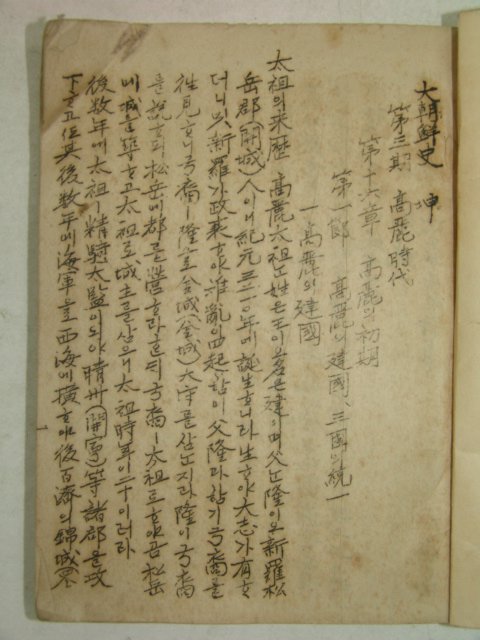 大朝鮮史 坤
第三期 高麗時代
第十六章 高麗의 初期
第一節 高麗의 建國、三國의 統一
一 高麗의 建國
太祖의 來歷 高麗太祖는 姓은 王이오 名은 建이며 父는 隆이오 新羅松
岳郡(開城)人이니 紀元三二一〇年에 誕生하니라 生하야 大志가 有하
더니 以 新羅가 政衰하야 淮亂이 四起하 이 父隆과 함기 弓裔를
往見하니 弓裔ㅣ 隆으로 金城(金城)太守를 삼은지라 隆이 弓裔
를 說하되 松岳에 郡을 營하라 한 弓裔ㅣ 太祖로 하야곰 松岳
에 城을 築하고 太祖로 城主를 삼으니 太祖時年이 二十이러라
後数年에 太祖ㅣ 精騎大監이 되야 晴州(開寧)等諸郡을 攻
下하고 任其後数年에 海軍을 西海에 橫하야 後百濟의 錦城界